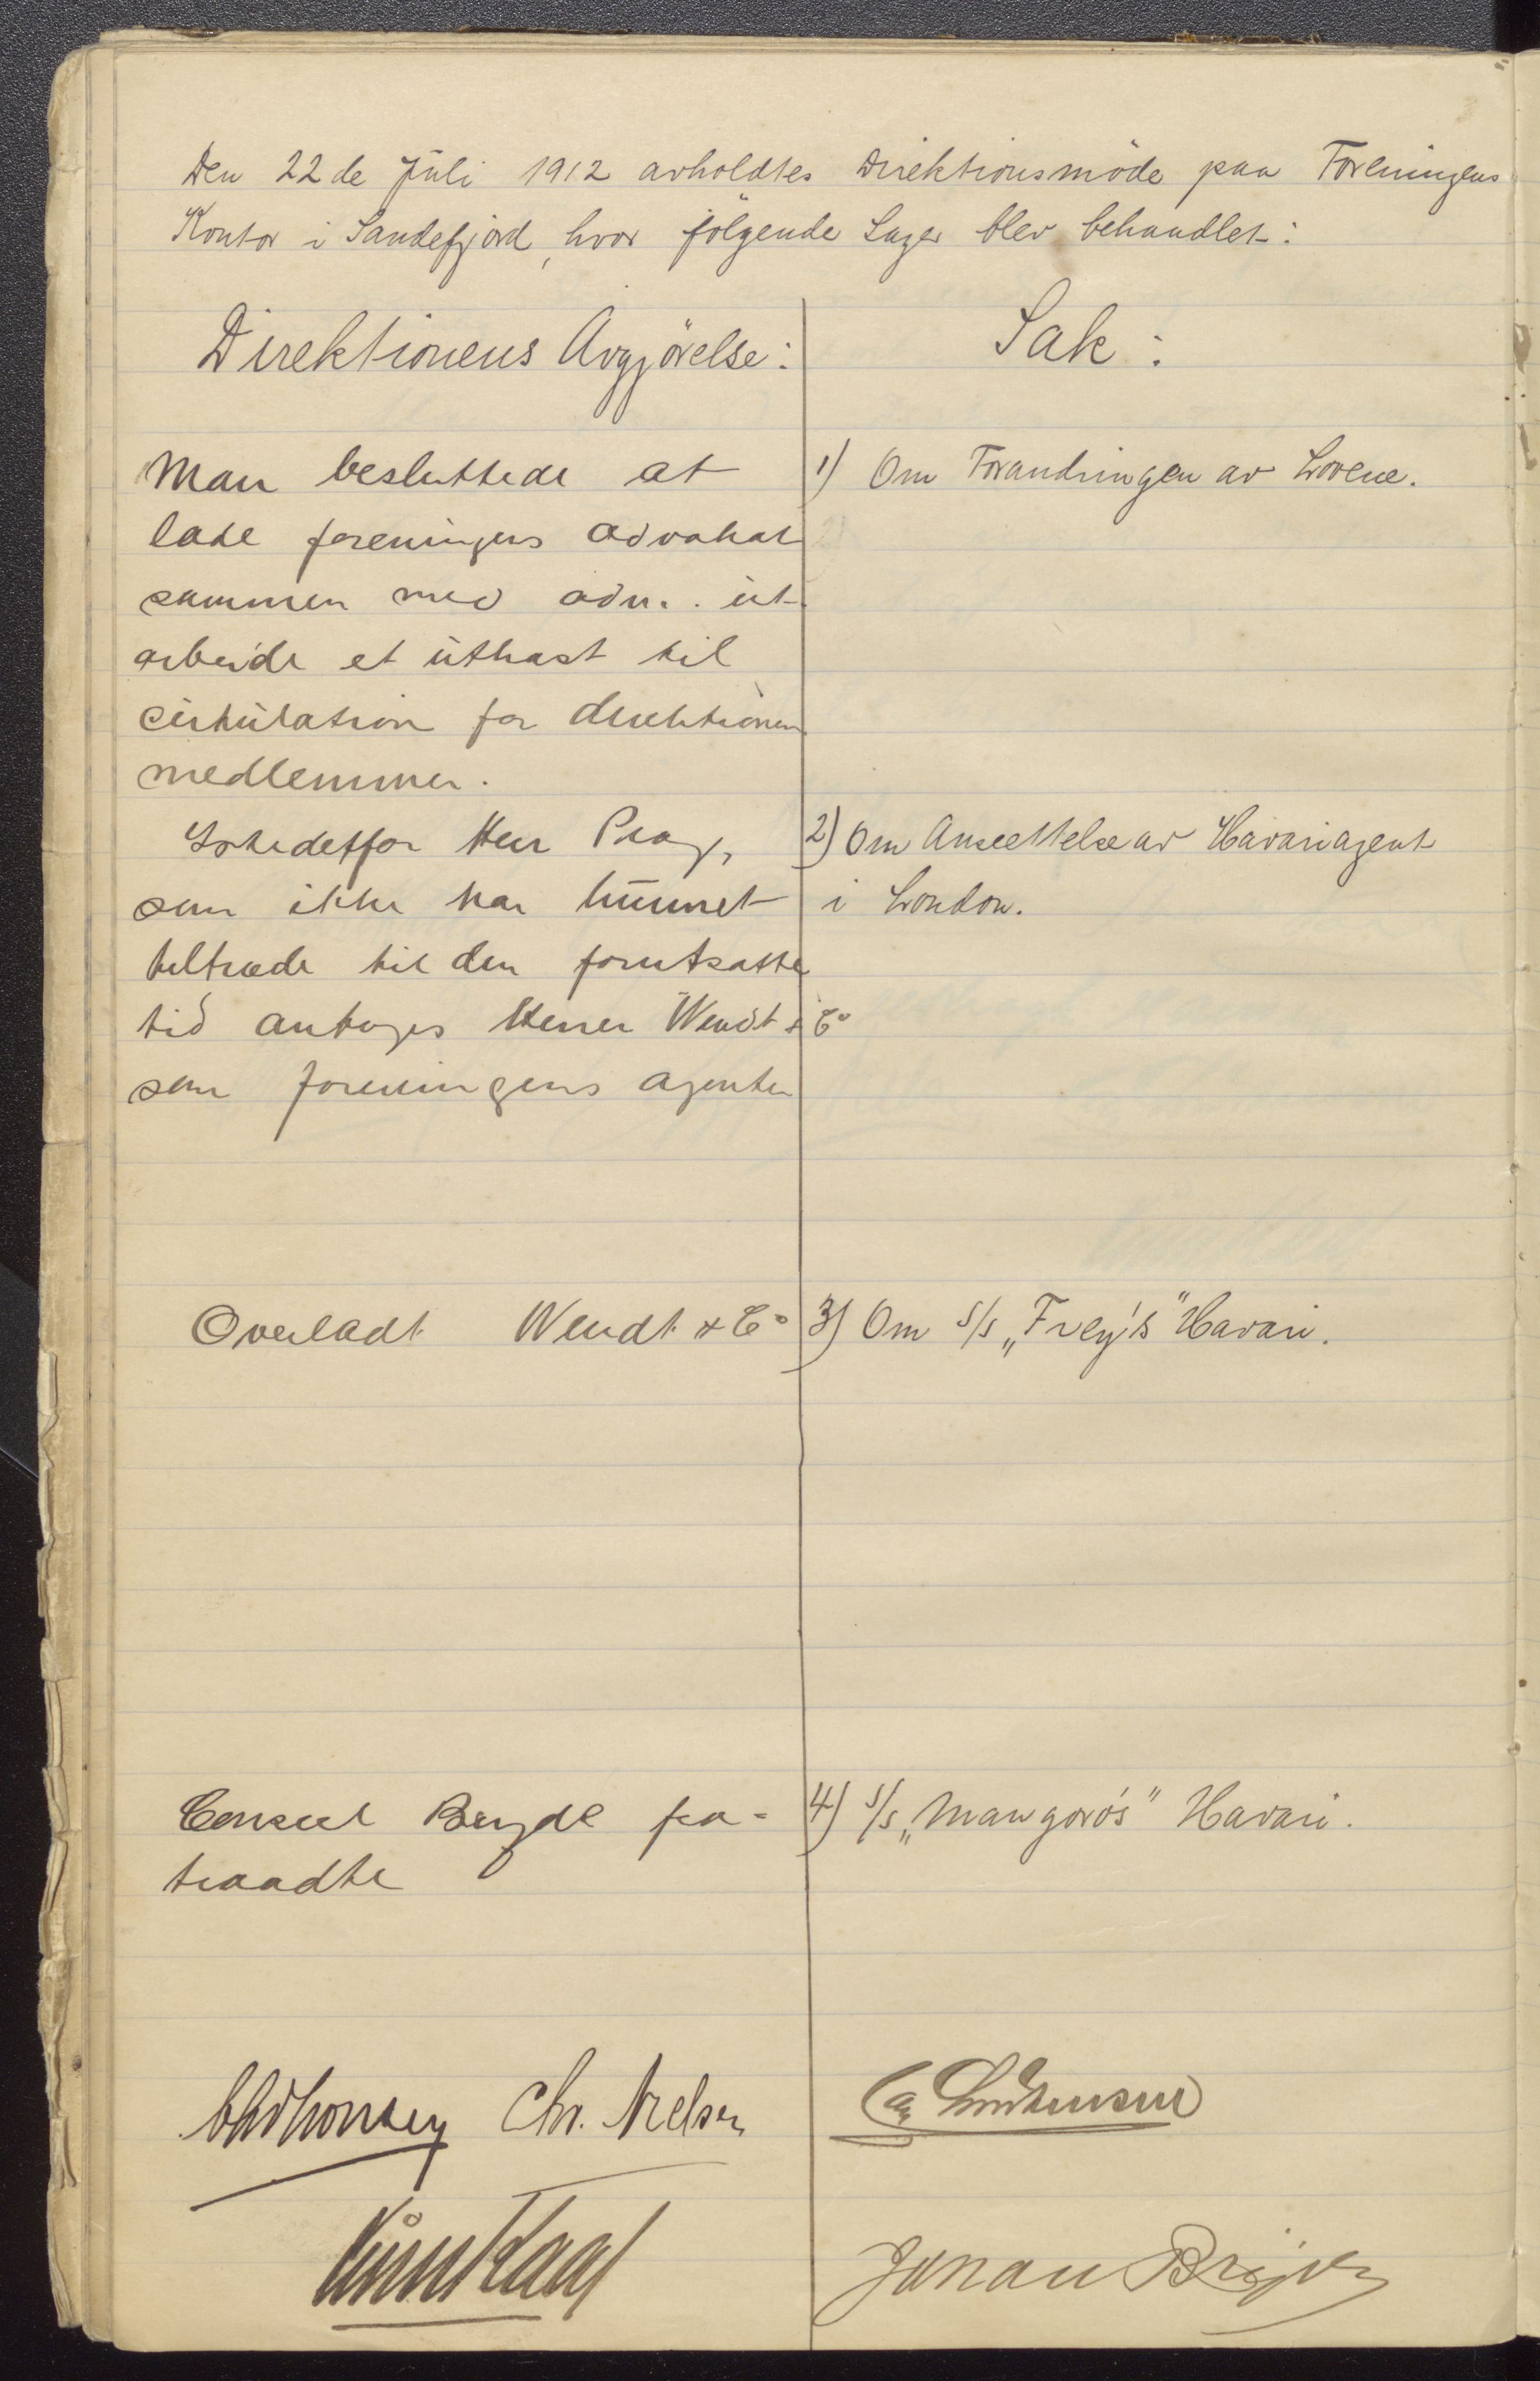 Den 22de Juli 1912 avholdtes Direktionsmöde paa Foreningens
Kontor i Sandefjord, hvor følgende Sager blev behandlet:
Direktionens Avgjörelse:
Sak:
Man besluttede at
lade foreningens advokat
sammen med adm. ut-
arbeide et utkast til
cirkulation for direktionens
medlemmer.
1) Om Forandringen av Lovene.
Istedetfor Herr Prag,
som ikke har kunnet
tiltræde til den forutsatte
tid antages Herrer Wendt & Co
som foreningens agenter
2) Om Ansettelse av Havariagent
i London.
Overladt Wendt & Co
3) Om S/S „Frey's" Havari.
Consul Bryde fra-
traadte
4) S/S „Mangoro's" Havari.
Chr. Nielsen
Johan Bryde